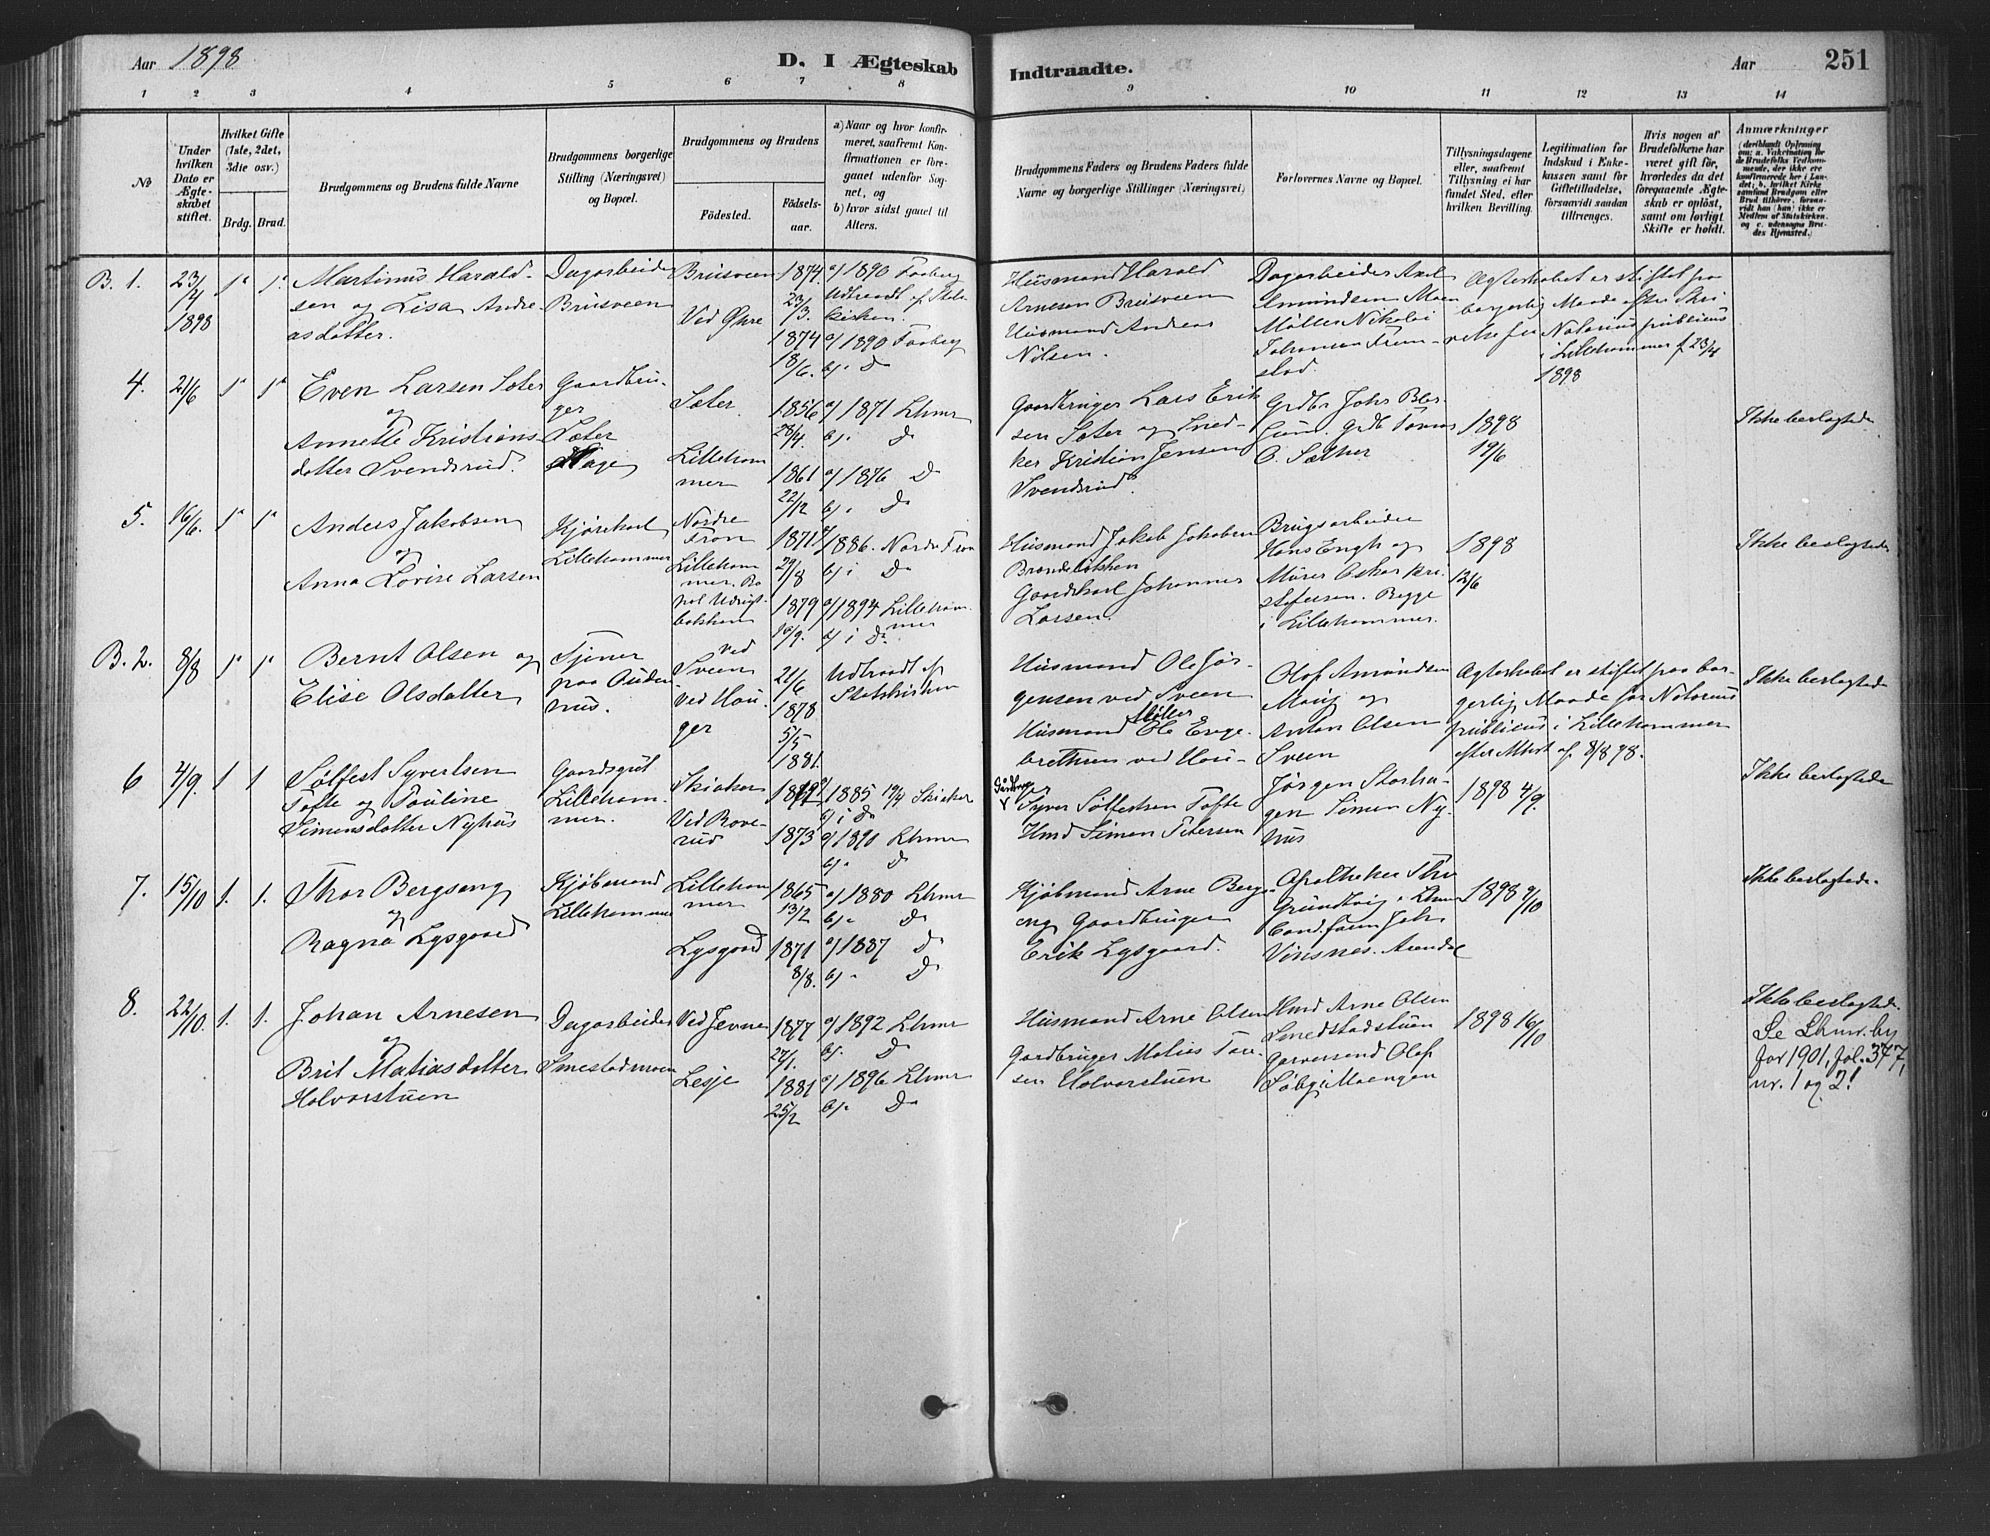 Aar 1898
D. I Ægteskab
Indtraadte.
Aar
251
1 2 3 4 5 6 7 8 9 10 11 12 13 14
No
Under hvilken Dato er Ægteskabet stiftet.
Hvilket Gifte (1ste, 2det, 3die osv.)
Brdg. Brud.
Brudgommens og Brudens fulde Navne
Brudgommens borgerlige Stilling (Næringsvei) og Bopæl.
Brudgommens og Brudens
Födested.
Födselsaar.
a) Naar og hvor konfirmeret, saafremt Konfirmationen er foregaaet udenfor Sognet, og
b) hvor sidst gaaet til Alters.
Brudgommens Faders og Brudens Faders fulde Navne og borgerlige Stillinger (Næringsvei)
Forlovernes Navne og Bopæl.
Tillysningsdagene eller, saafremt Tillysning ei har fundet Sted, efter hvilken Bevilling.
Legitimation for Indskud i Enkekassen samt for Giftetilladelse, forsaavidt saadan tiltrænges.
Hvis nogen af Brudefolkene har været gift för, hvorledes da det foregaaende Ægteskab er oplöst, samt om lovligt Skifte er holdt.
Anmærkninger
B. 1.
23/4 1898
1ste 1ste
Martinus Harald-
sen og Lisa Andre-
asdatter.
Dagarbeider
Brusveen
Brusveen
Ved Øhre
1874.
23/3.
1874
18/6.
a/ 1890 Faaberg
Udtraadt af Stats-
kirken.
a/ 1890 Faaberg
b/. D
Husmand Harald
Arnesen Brusveen
Husmand Andreas
Nilsen.
Dagarbeider Axel
Amundsen Moen
Møller Nikolai
Johansen Frem-
stad
Ægteskabet er stiftet paa
borgerlig Maade efter Skri-
velse fra Notarius publicus
i Lillehammer af 23/4
1898
4.
21/6
Even Larsen Sæter
og
Annette Kristians-
datter Svendsrud.
Gaardbru-
ger
Sæter
Sæter.
Lilleham
mer
1856
28/4.
1861
22/12
a/ 1871 Lhmr
b/. D
a/ 1876 D
b/. D
Gaardbruger Lars Erik
sen Sæter og Sned-
ker Kristian Jensen
Svendsrud.
O. Sæther
1898
19/6
Ikke beslægtede
5.
16/6.
Anders Jakobsen
og
Anna Lovise Larsen
Kjørekarl
Lillehammer
Nordre
Fron
Lilleham
mer.
1871
29/8
1879
a/ 1886. Nordre Fron
b/ i D
a/ 1894 Lilleham-
mer
b/ i D.
Husmand Jakob Jakobsen
Gaardskarl Johannes
Larsen.
Brugsarbeider
Hans Engh og
Murer Oskar Kri-
stofersen. Begge
i Lillehammer.
1898
12/6
Ikke beslægtede
B. 2.
8/8
Bernt Olsen og
Elise Olsdatter
Tjener
paa
rud.
ved
Sveen
Ved Hau-
ger
21/6
1878
5/5
1881.
Udtraadt af
Statskirken
Husmand Ole Jør-
gensen ved Sveen
Husmand Ole Enge-
brethsen ved Hau-
Olof Amundsen
Moug og
Anton Olsen
Sveen
Ægteskabet er stiftet paa bor-
gerlig Maade for Notarius
publicus i Lillehammer
efter Attest af 8/8 98.
Ikke beslægtede
6
4/9.
1 1
Sølfest Syvertsen
Tofte og Pauline
Simensdatter Nyhus
Gaardsgut
Lilleham-
mer.
Skiaker
Ved Rove-
rud
1873
a/ 1885 19/4 Skiaker
b/ i D
a/ 1890 Lhmr
b/. D
Syver Sølfestsen Tofte
Hmd Simen Petersen
Jørgen Storha-
gen Simen Ny-
hus
1898 4/9.
Ikke beslægtede
7.
15/10
1. 1.
Thor Bergseng
og
Ragna Lysgaard
Kjøbmand
Lillehammer
Lilleham
mer
Lysgaard
1865
13/2
1871
8/8.
a/ 1880 Lhmr
b/. D
a/ 1887 D
b/. D
Kjøbmand Arne Bergs-
eng Gaardbruger
Erik Lysgaard.
Apotheker Thv
Grundtvig i Lhmr
Cand. farm Joh.
Vinsnes. Arendal
1898 9/10
Ikke beslægtede.
8.
22/10.
1. 1.
Johan Arnesen
og
Brit Matiasdatter
Holvorstuen
Dagarbeider
Smestadmoen
Ved Jevne
Lesje
1877
27/1.
1881
25/2
a/ 1892 Lhmr
b/. D
a/ 1896 Lhmr
b/. D
Husmand Arne Olsen
Gardbruger Matias Tor-
sen Holvorstuen
Hmd Arne Olsen
Smedstadstuen
Garversvend Olof
1898 16/10
Ikke beslægtede.
Se Lhmr. by
for 1901, fol. 377,
nr. 1 og 2!